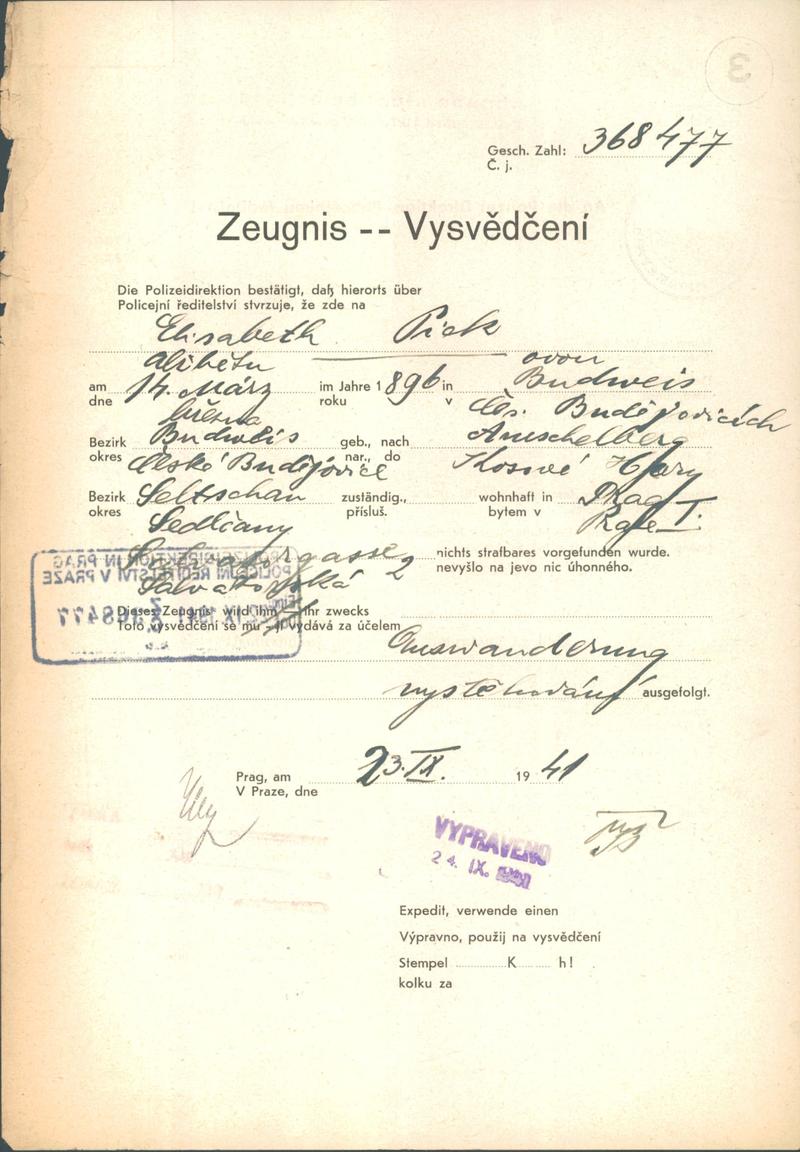 Gesch. Zahl: 368477
Č. j.
Zeugnis -- Vysvědčení
Die Polizeidirektion bestätigt, daß hierorts über
Policejní ředitelství stvrzuje, že zde na
Elisabeth Pick
Alžbětu
am 14. März im Jahre 1896 in Budweis
dne března roku v Čes. Budějovicích
Bezirk Budweis geb., nach Amschelberg
okres České Budějovice nar., do Kosové Hory
Bezirk Seltschan zuständig., wohnhaft in Prag I.
okres Sedlčany přísluš. bytem v Praze
Salvatorgasse 2 nichts strafbares vorgefunden wurde.
Salvatorská nevyšlo na jevo nic úhonného.
Dieses Zeugnis wird ihm - ihr zwecks
Toto vysvědčení se mu - jí vydává za účelem
Auswanderung
vystěhování ausgefolgt.
POLIZEIDIREKTION IN PRAG
POLICEJNÍ ŘEDITELSTVÍ V PRAZE
368477
Prag, am 23. IX. 1941
V Praze, dne
VYPRAVENO
24. IX.
Expedit, verwende einen
Výpravno, použij na vysvědčení
Stempel K h!
kolku za
3